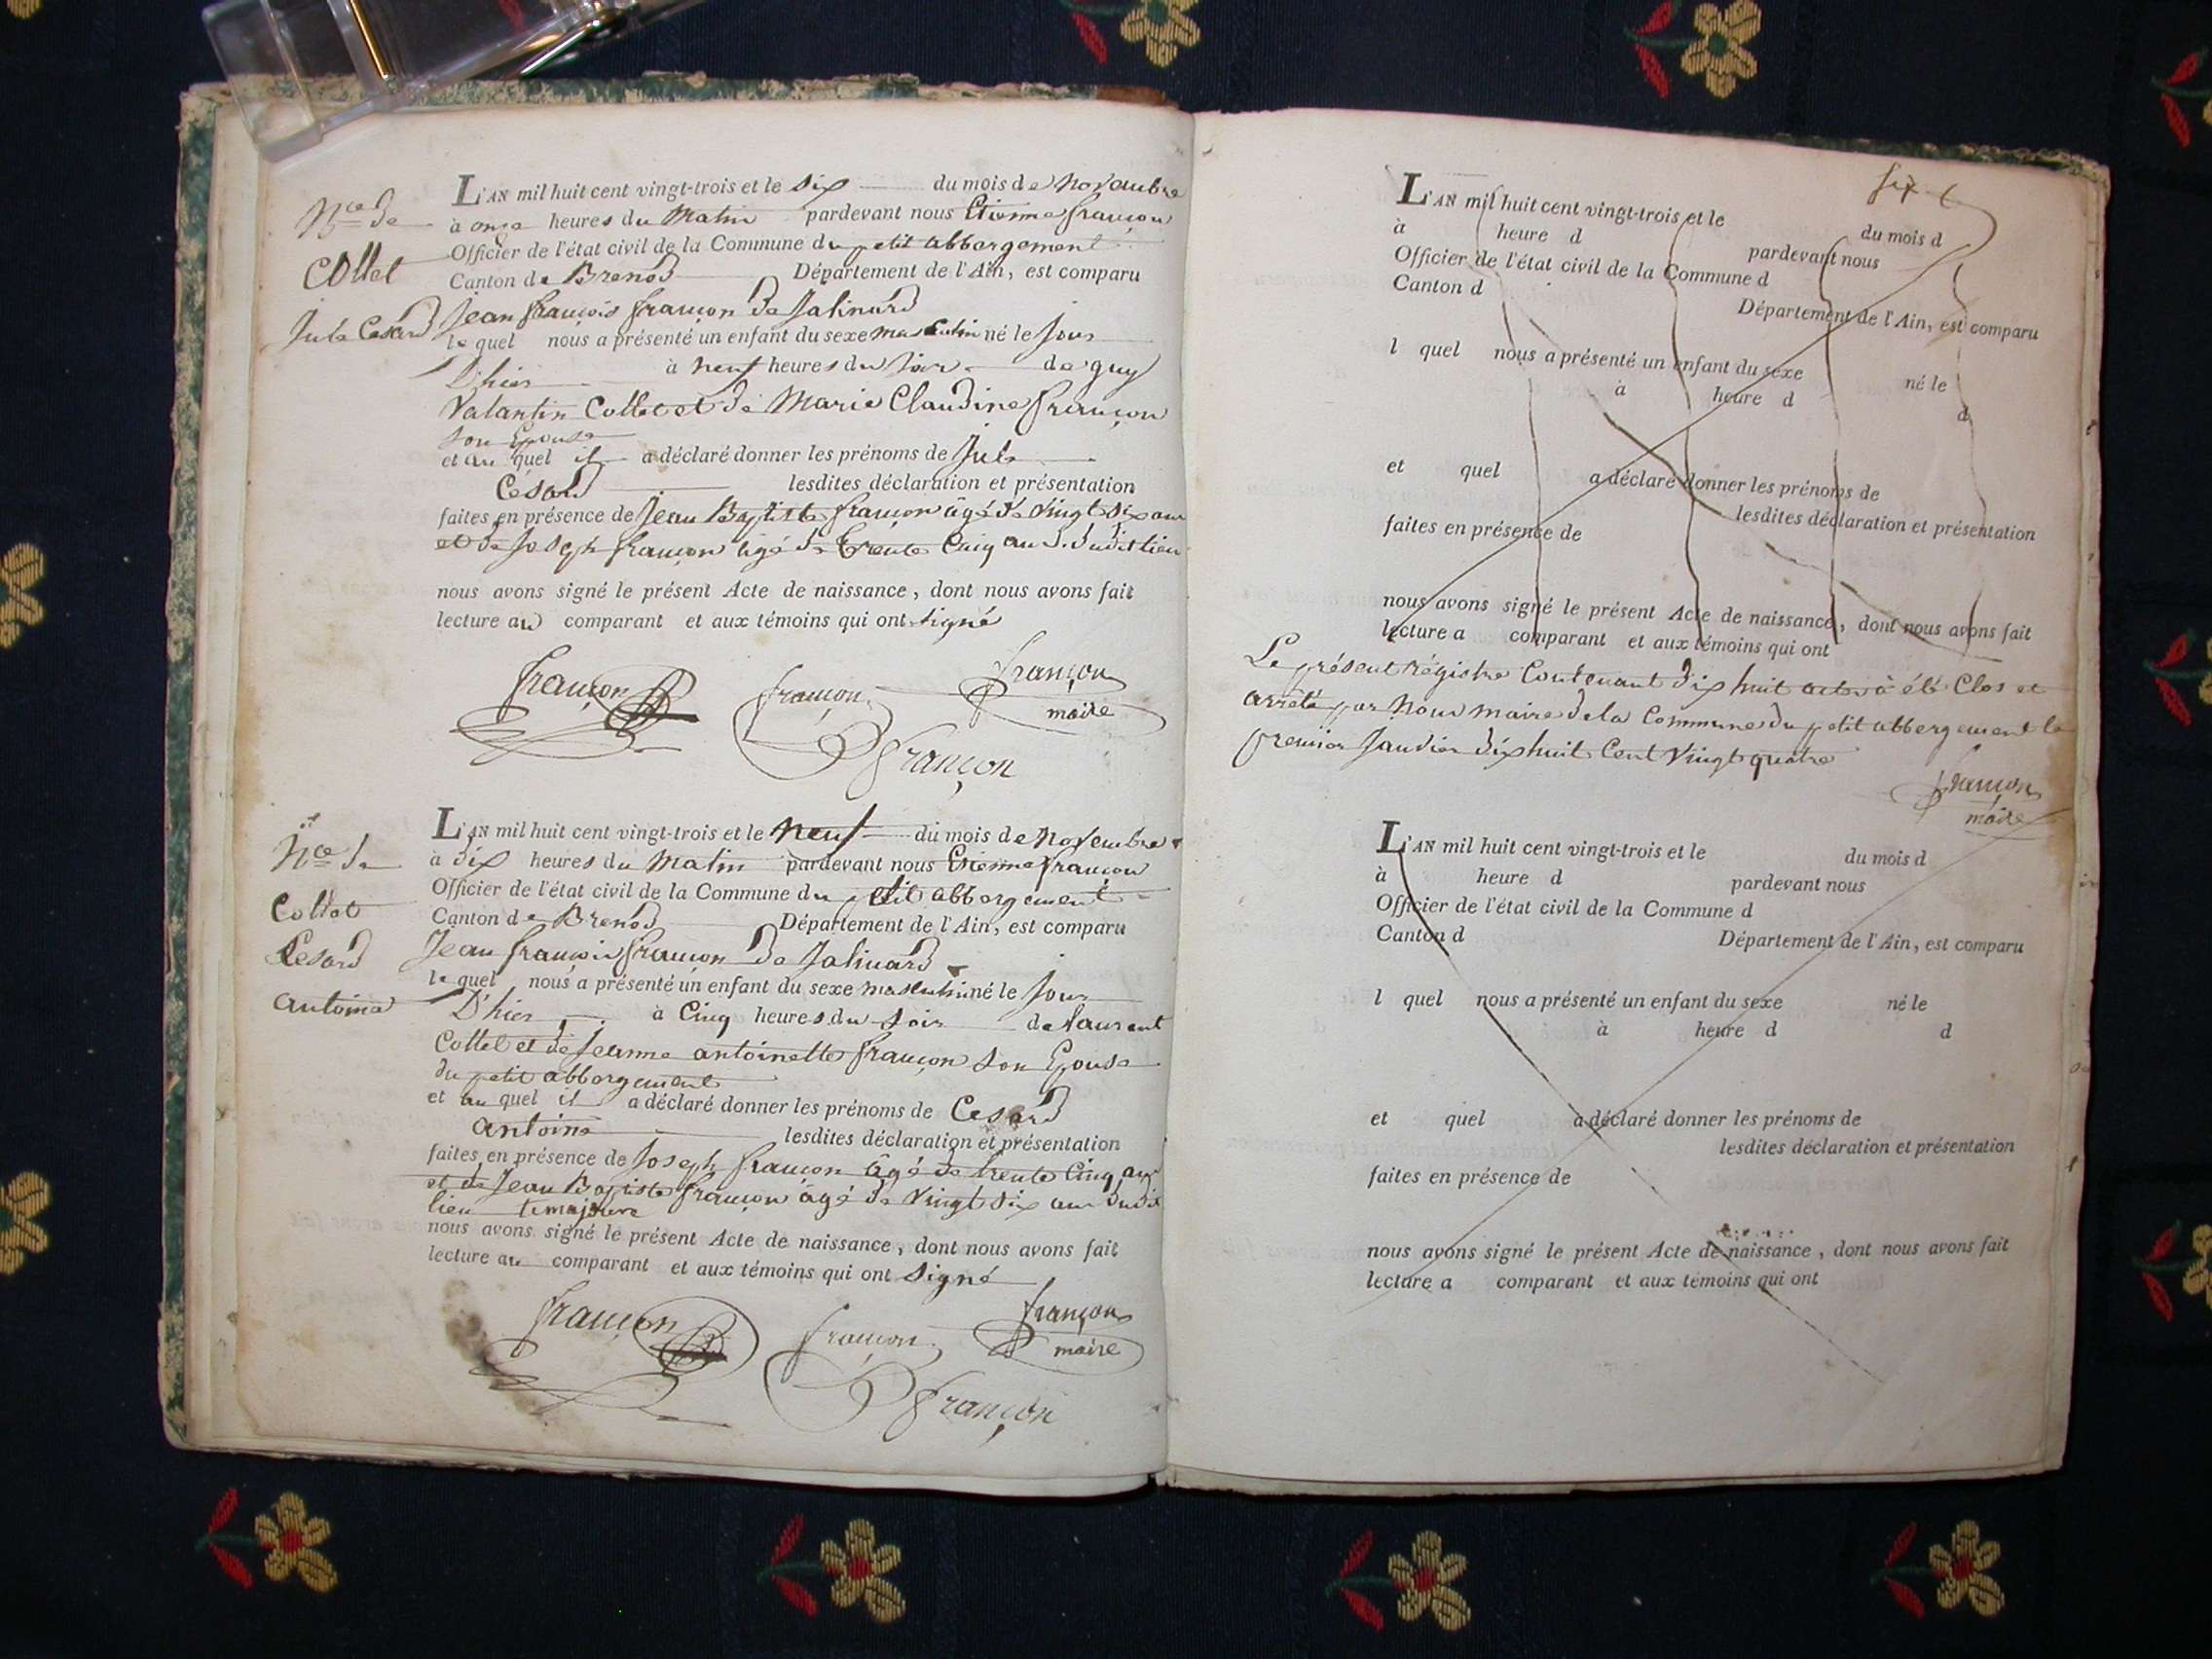 Nce de
Collet
Jule Cesard
L'AN mil huit cent vingt-trois et le six du mois de Novembre
à onze heures du Matin pardevant nous Etienne françon
Officier de l'état civil de la Commune du petit abbergement
Canton de Brenod Département de l'Ain, est comparu
Jean françois françon De Jalinard
le quel nous a présenté un enfant du sexe masculin né le jour
D'hier à neuf heures du soir de guy
Valantin Collet et de Marie Claudine françon
son Epouse
et au quel il a déclaré donner les prénoms de Jule
Césard lesdites déclaration et présentation
faites en présence de Jean Baptiste françon âgé de vingt six ans
et de Joseph françon âgé de trente Cinq ans dudit lieu
nous avons signé le présent Acte de naissance, dont nous avons fait
lecture au comparant et aux témoins qui ont signé
françon françon françon
maire
françon
Nce de
Collet
Cesard
antoine
L'AN mil huit cent vingt-trois et le Neuf du mois de Novembre
à dix heures du Matin pardevant nous Etienne françon
Officier de l'état civil de la Commune du petit abbergement
Canton de Brenod Département de l'Ain, est comparu
Jean françois françon De Jalinard
le quel nous a présenté un enfant du sexe masculin né le jour
D'hier à Cinq heures du soir de laurent
Collet et de Jeanne antoinette françon son Epouse
du petit abbergement
et au quel il a déclaré donner les prénoms de Cesard
antoine lesdites déclaration et présentation
faites en présence de Joseph françon âgé de trente Cinq ans
et de Jean Baptiste françon âgé de vingt six ans dudit
lieu
nous avons signé le présent Acte de naissance, dont nous avons fait
lecture au comparant et aux témoins qui ont signé
françon françon françon
maire
françon
six
L'AN mil huit cent vingt-trois et le du mois d
à heure d pardevant nous
Officier de l'état civil de la Commune d
Canton d Département de l'Ain, est comparu
l quel nous a présenté un enfant du sexe né le
à heure d d
et quel a déclaré donner les prénoms de
lesdites déclaration et présentation
faites en présence de
nous avons signé le présent Acte de naissance, dont nous avons fait
lecture a comparant et aux témoins qui ont
Le présent régistre Contenant dix huit actes à été Clos et
arrêté par Nous maire de la Commune du petit abbergement le
premier Janvier dix huit Cent Vingt quatre
françon
maire
L'AN mil huit cent vingt-trois et le du mois d
à heure d pardevant nous
Officier de l'état civil de la Commune d
Canton d Département de l'Ain, est comparu
l quel nous a présenté un enfant du sexe né le
à heure d d
et quel a déclaré donner les prénoms de
lesdites déclaration et présentation
faites en présence de
nous avons signé le présent Acte de naissance, dont nous avons fait
lecture a comparant et aux témoins qui ont